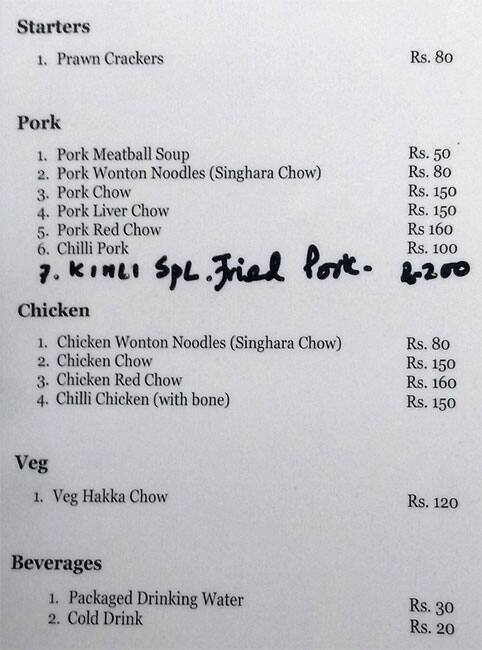 Starters
1. Prawn Crackers Rs. 80
Pork
1. Pork Meatball Soup Rs. 50
2. Pork Wonton Noodles (Singhara Chow) Rs. 80
3. Pork Chow Rs. 150
4. Pork Liver Chow Rs. 150
5. Pork Red Chow Rs 160
6. Chilli Pork Rs. 100
7. KIMLI SpL. Fried Pork. 200
Chicken
1. Chicken Wonton Noodles (Singhara Chow) Rs. 80
2. Chicken Chow Rs. 150
3. Chicken Red Chow Rs. 160
4. Chilli Chicken (with bone) Rs. 150
Veg
1. Veg Hakka Chow Rs. 120
Beverages
1. Packaged Drinking Water Rs. 30
2. Cold Drink Rs. 20